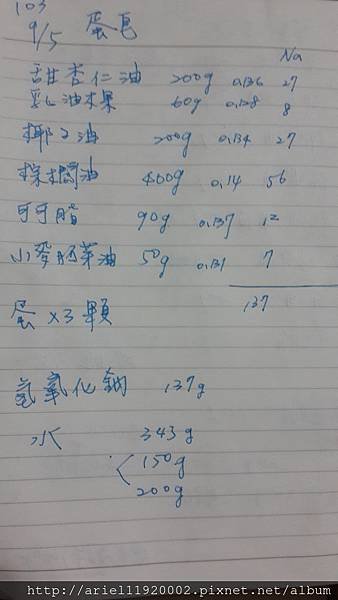 103
9/5 蛋皂
Na
甜杏仁油 200g 0.136 27
乳油木果 60g 0.128 8
椰子油 200g 0.134 27
棕櫚油 400g 0.14 56
可可脂 90g 0.137 12
小麥胚芽油 50g 0.131 7
137
蛋 x3顆
氫氧化鈉 137g
水 343g
150g
200g
http://ariel11920002.pixnet.net/album